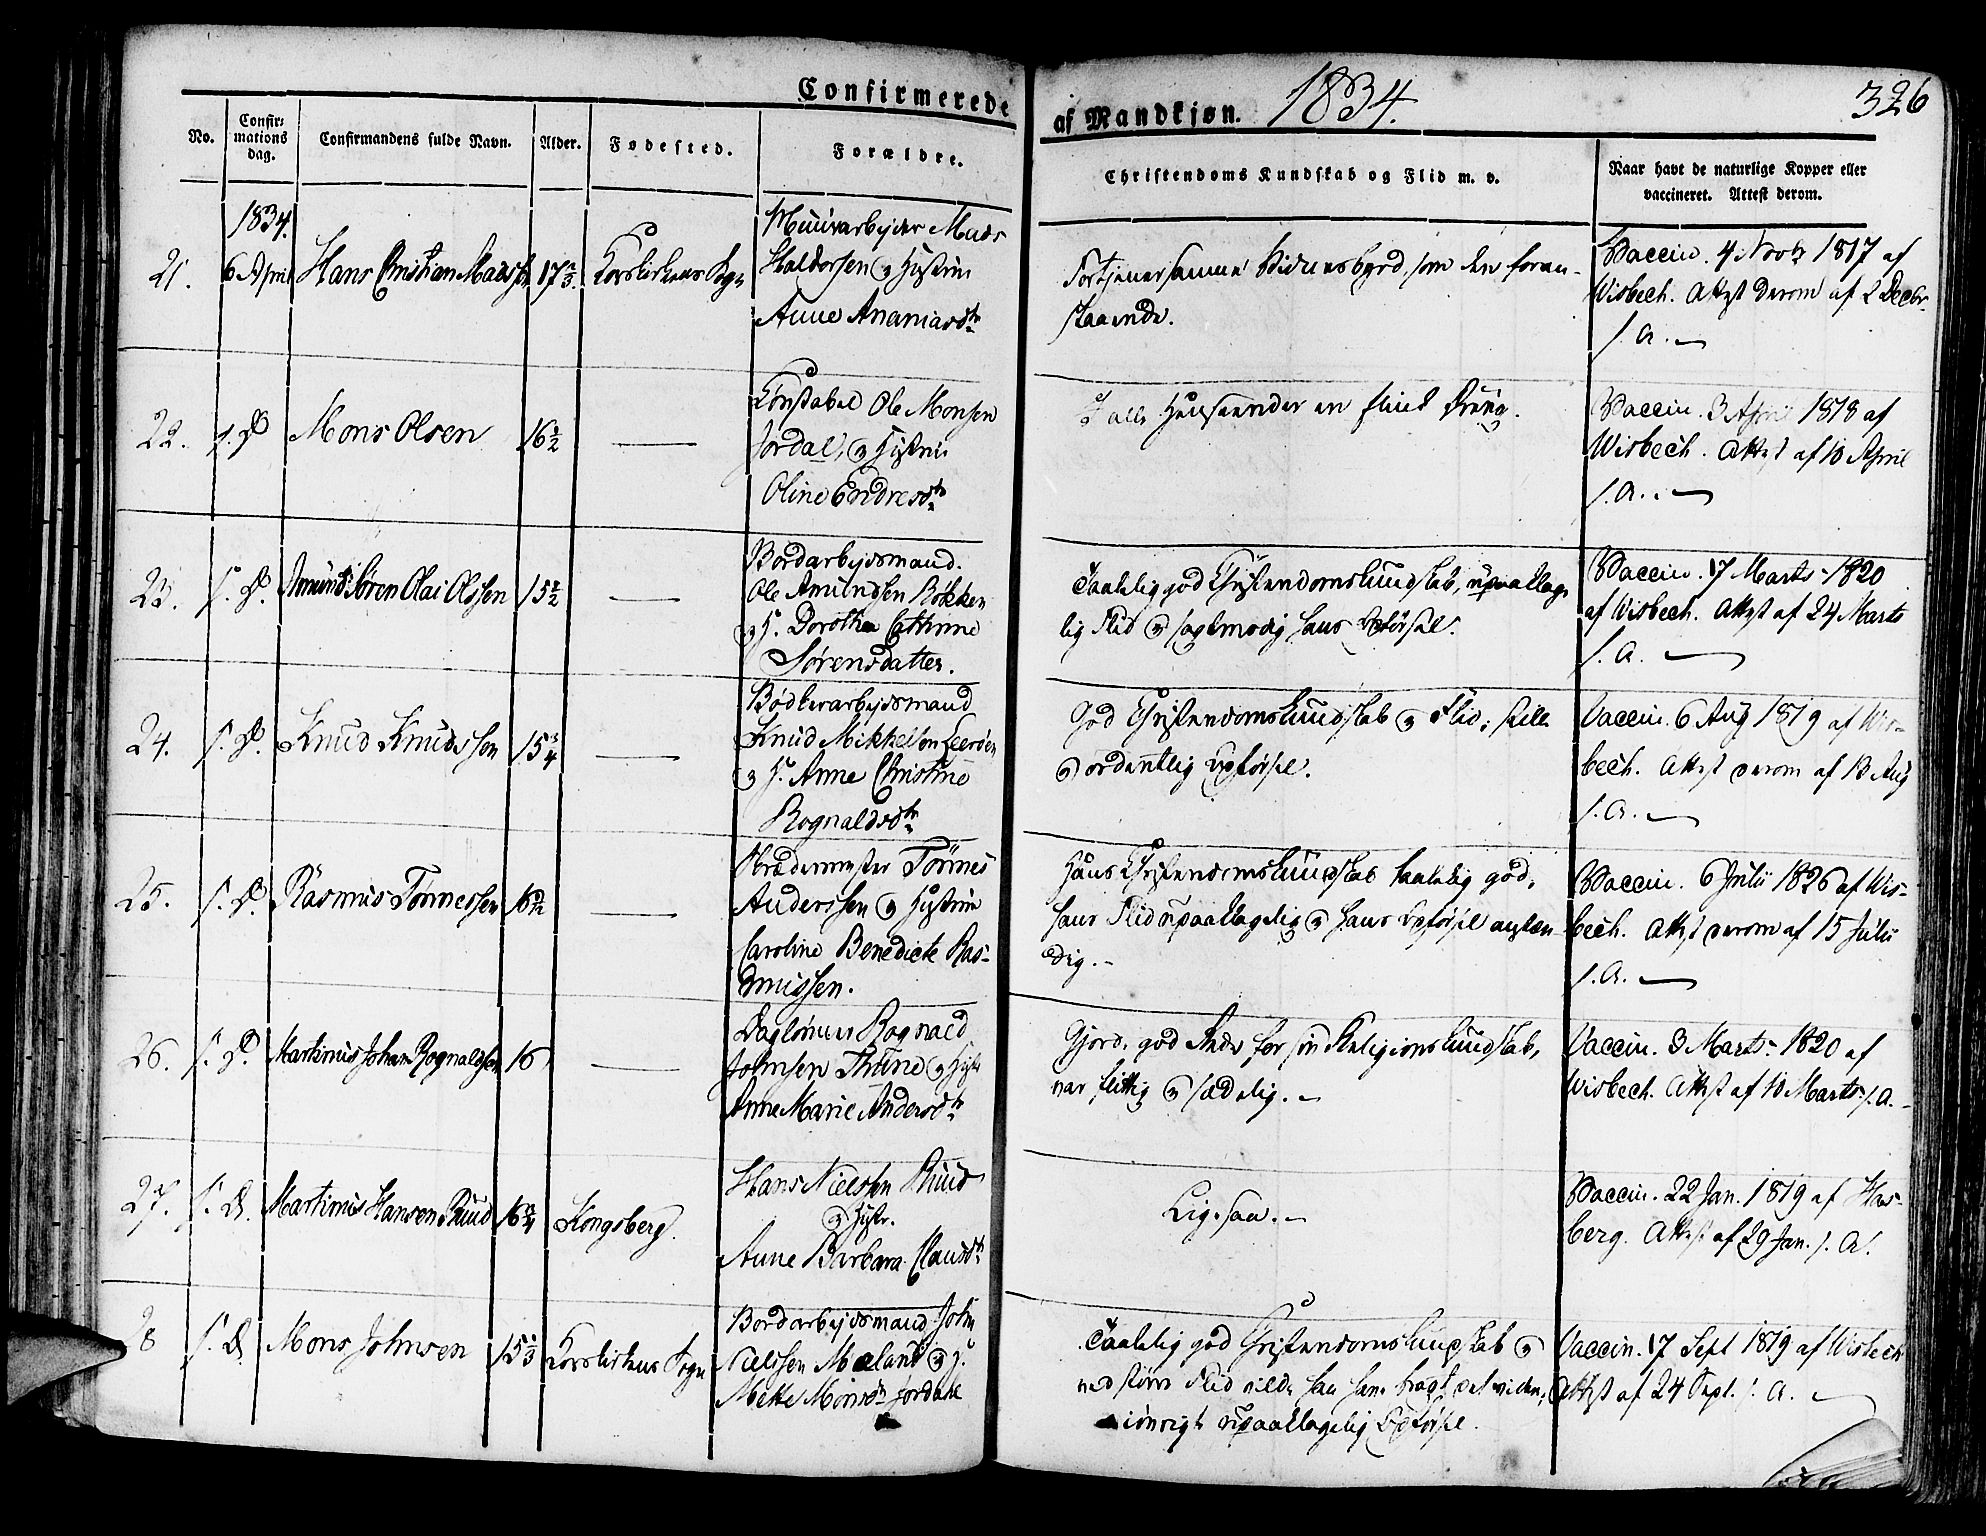 Confirmerede
af Mandkjøn. 1834. 326
No.
Confir-
mations
dag.
Confirmandens fulde Navn.
Alder.
Fødested.
Forældre.
Christendoms Kundskab og Flid m. v.
Naar havt de naturlige Kopper eller
vaccineret. Attest derom.
1834.
21. 6 April Hans Christian Madssen 17 2/3 Korskirkens Sogn
Muurarbejder Mads
Haldorsen og Hustru
Anne Ananiasdtr
Fortjener samme Vidnesbyrd, som den foran-
staaende.
Vaccin. 4 Novbr 1817 af
Wisbech. Attest derom af 2 Decbr.
s. A. —
22. s. D. Mons Olsen 16 1/2 —
Constabel Ole Monsen
Jordal, og Hustru
Oline Endresdtr
I alle Henseender en flink Dreng.
Vaccin. 3 April 1818 af
Wisbech. Attest af 10 April
s. A. —
23. s. D. Amund Søren Olai Olssen 15 1/2 —
Bordarbejdsmand.
Ole Amundsen Røkken
og H. Dorothea Cathrine
Sørensdatter.
Taalelig god Christendomskundskab, upaaklage-
lig Flid og sagtmodig hans Opførsel.
Vaccin. 17 Marts 1820
af Wisbech. Attest af 24 Marts
s. A. —
24. s. D. Knud Knudssen 15 3/4 —
Bødkerarbejdsmand
Knud Mikkelson Leeröen
og H. Anne Christine
Rognaldsdtr
God Christendomskundskab og Flid; stille
og ordentlig Opførsel.
Vaccin. 6 Aug 1819 af Wis-
bech. Attest derom af 13 Aug
s. A. —
25. s. D. Rasmus Tønnessen 16 1/2 —
Tønnes
Anderssen og Hustru
Caroline Benedicte Ras-
mussen.
Hans Christendomskundskab taalelig god,
hans Flid upaaklagelig og hans Opførsel anstæn-
dig. —
Vaccin. 6 Julii 1826 af Wis-
bech. Attest derom af 15 Julii
s. A. —
26. s. D. Martinus Johan Rognaldsen 16 —
Daglønner Rognald
Johnsen Thune og Hustr
Anne Marie Andersdtr
Gjorde god Rede for sin Religionskundskab,
var flittig og sædelig. —
Vaccin. 3 Marts 1820 af
Wisbech. Attest af 10 Marts s. A. —
27. s. D. Martinus Hansen Ruud 16 3/4 Kongsberg.
Hans Nielsen Ruud
og Hustr.
Anne Barbara Clausdtr
Ligesaa. —
Vaccin. 22 Jan. 1819 af Has-
berg. Attest af 29 Jan. s. A.
28 s. D. Mons Johnsen 15 1/3 Korskirkens Sogn
Bordarbejdsmand John
Nielssen Mæland og H.
Mette Monsdtr Jordahl
Taalelig god Christendomskundskab og
ved større Flid vilde han have bragt det videre;
iøvrigt upaaklagelig Opførsel.
Vaccin. 17 Sept 1819 af Wisbech
Attest af 24 Sept. s. A. —